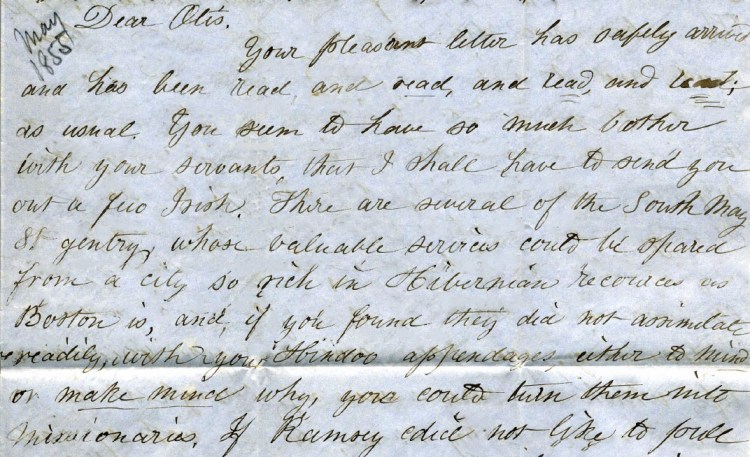 May
1855
Dear Otis.
Your pleasant letter has safely arrived
and has been read and read, and read, and read;
as usual. You seem to have so much bother
with your servants, that I shall have to send you
out a few Irish. There are several of the South May
St gentry, whose valuable services could be spared
from a city so rich in Hibernian recources as
Boston is, and, if you found they did not assimilate
readily, with your Hindoo appendages, either to mind
or make mind why, you could turn them into
missionaries. If Ramsey did not like to